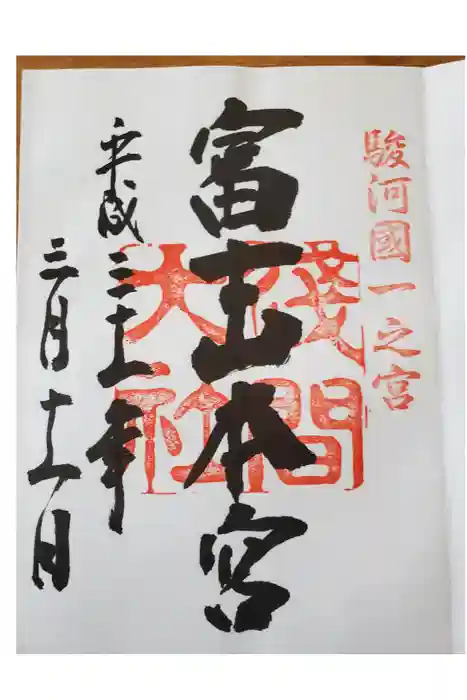 駿河國一之宮
富士山本宮
淺間
大社
平成三十一年
三月十一日